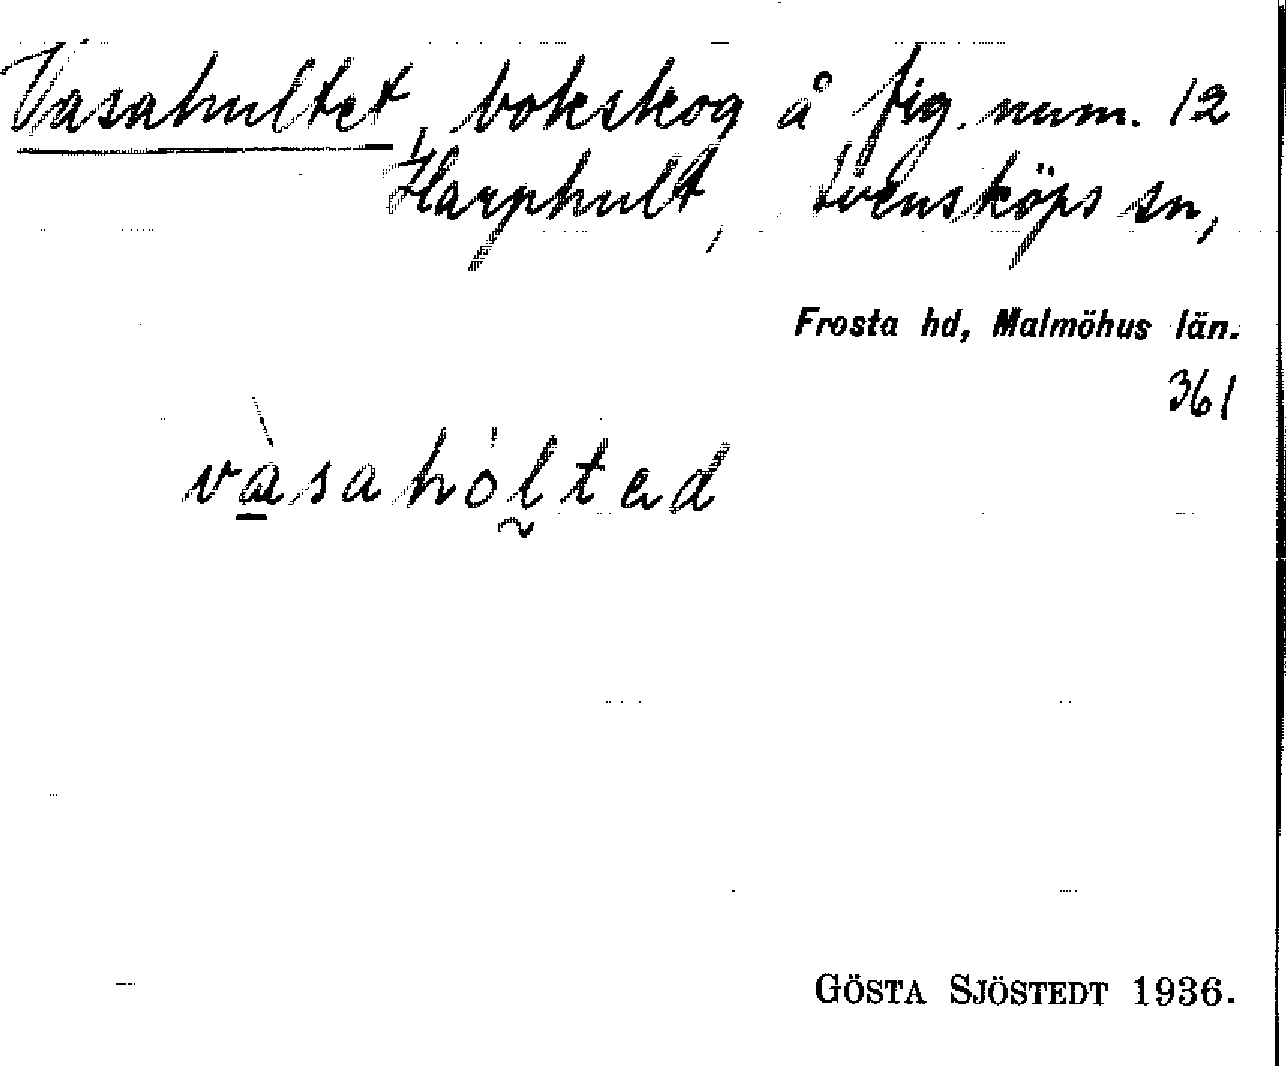 Vasahultet, bokskog å fig. num. 12
Harphult, Svensköps sn,
Frosta hd, Malmöhus län.
361
vàsahóltad
GÖSTA SJÖSTEDT 1936.